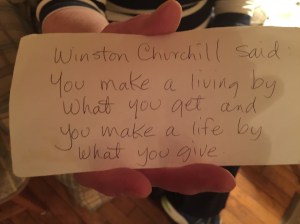 Winston Churchill said:
You make a living by
what you get and
you make a life by
what you give